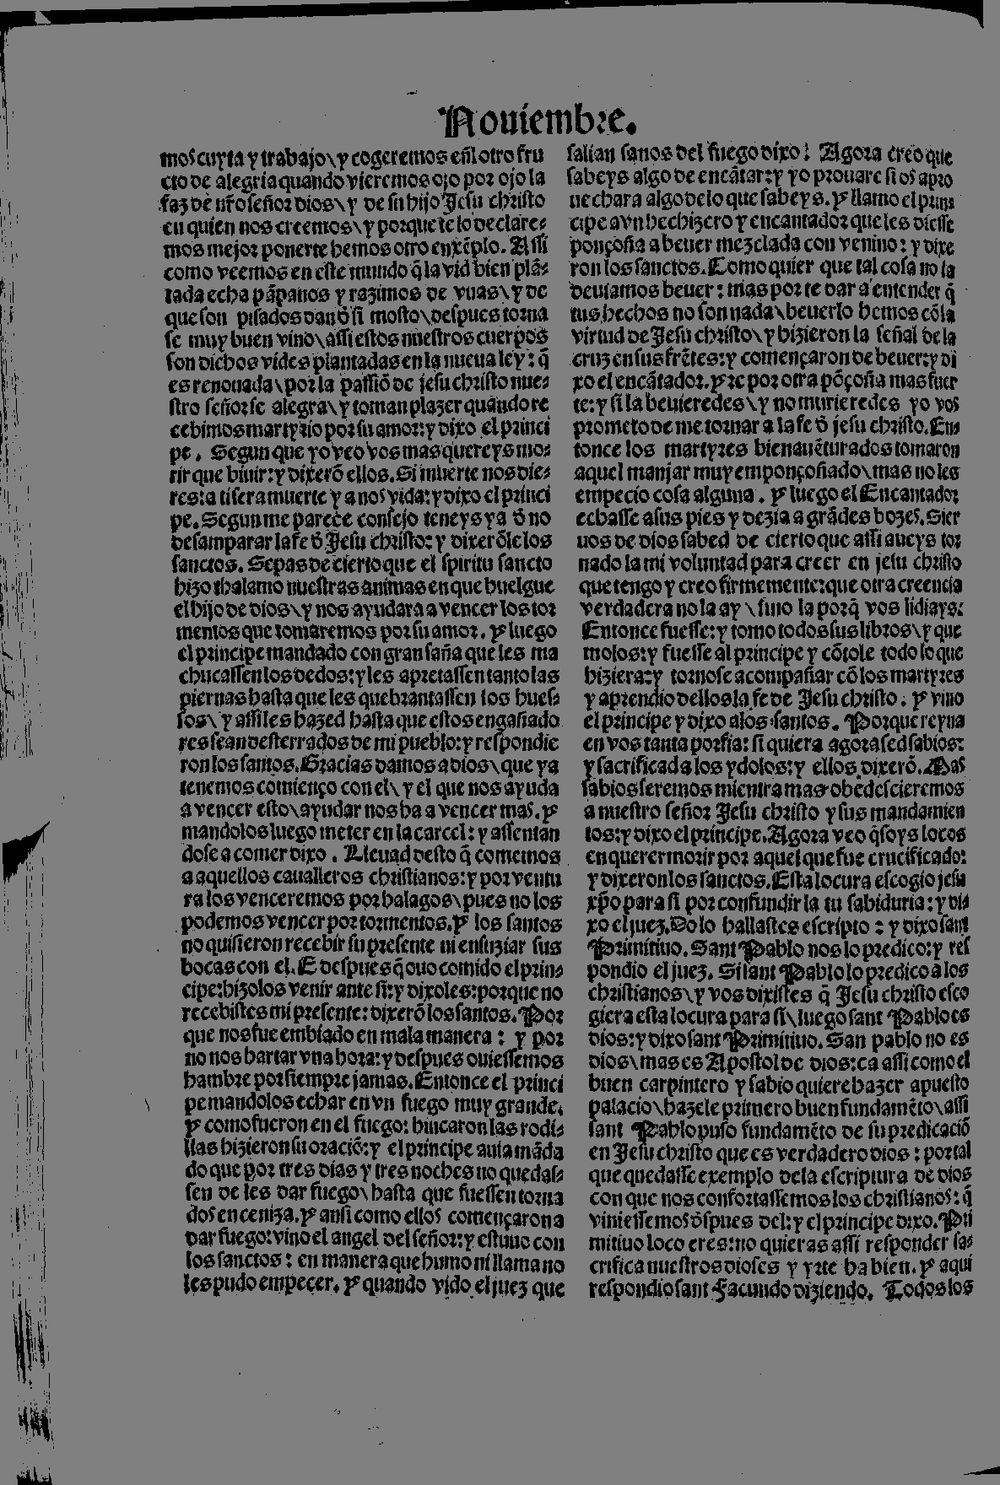 Nouiembre.
mos cuyta y trabajo\ y cogeremos eñl otro fru
cto de alegria quando vieremos ojo por ojo la
faz de nr̃o señor dios\ y de su hijo Jesu christo
en quien nos creemos\ y porque te lo declare-
mos mejor ponerte hemos otro enxẽplo. Assi
como veemos en este mundo q̃ la vid bien plã-
tada echa pãpanos y razimos de vuas\ y de
que son pisados dan d̃ si mosto\ despues torna
se muy buen vino\ assi estos nuestros cuerpos
son dichos vides plantadas en la nueua ley: q̃
es renouada\ por la passiõ de jesu christo nue-
stro señor se alegra\ y toman plazer quãndo re
cebimos martyrio por su amor: y dixo el princi
pe. Segun que yo veo vos mas quereys mo-
rir que biuir: y dixerõ ellos. Si muerte nos die-
res: a ti sera muerte y a nos vida: y dixo el princi
pe. Segun me parece consejo teneys ya d̃ no
desamparar la fe d̃ Jesu christo: y dixerõle los
sanctos. Sepas de cierto que el spiritu sancto
hizo thalamo nuestras animas en que huelgue
el hijo de dios\ y nos ayudara a vencer los tor
mentos que tomaremos por su amor. E luego
el principe mandado con gran saña que les ma
chucassen los dedos: y les apretassen tanto las
piernas hasta que les quebrantassen los hues-
sos\ y assi les hazed hasta que estos engañado
res sean desterrados de mi pueblo: y respondie
ron los santos. Gracias damos a dios\ que ya
tenemos comienço con el\ y el que nos ayuda
a vencer esto\ ayudar nos ha a vencer mas. E
mandolos luego meter en la carcel: y assentan
dose a comer dixo. Lleuad desto q̃ comemos
a aquellos caualleros christianos: y por ventu
ra los venceremos por halagos\ pues no los
podemos vencer por tormentos. E los santos
no quisieron recebir su presente ni ensuziar sus
bocas con el. E despues q̃ ouo comido el prin-
cipe: hizolos venir ante si: y dixoles: porque no
recebistes mi presente: dixerõ los santos. Por
que nos fue embiado en mala manera: y por
no nos hartar vna hora: y despues ouiessemos
hambre por siempre jamas. Entonce el princi
pe mandolos echar en vn fuego muy grande.
E como fueron en el fuego: hincaron las rodi-
llas hizieron su oraciõ: y el principe auia mãda
do que por tres dias y tres noches no quedas-
sen de les dar fuego\ hasta que fuessen torna
dos en ceniza. E ansi como ellos començaron a
dar fuego: vino el angel del señor: y estuuo con
los sanctos: en manera que humo ni llama no
les pudo empecer. E quando vido el juez que
salian sanos del fuego dixo: Agora creo que
sabeys algo de encãtar: y yo prouare si os apro
uechara algo delo que sabeys. E llamo el prin
cipe a vn hechizero y encantador que les diesse
ponçoña a beuer mezclada con venino: y dixe
ron los sanctos. Como quier que tal cosa no la
deuiamos beuer: mas por te dar a entender q̃
tus hechos no son nada\ beuerlo hemos cõ la
virtud de Jesu christo\ y hizieron la señal de la
cruz en sus frẽtes: y començaron de beuer: y di
xo el encãtador. Yre por otra põçoña mas fuer
te: y si la beuieredes\ y no murieredes yo vos
prometo de me tornar a la fe d̃ jesu christo. En-
tonce los martyres bienauẽturados tomaron
aquel manjar muy emponçoñado\ mas no les
empecio cosa alguna. E luego el Encantador
echasse a sus pies y dezia a grãdes bozes. Sier
uos de dios sabed de cierto que assi aueys tor
nado la mi voluntad para creer en jesu christo
que tengo y creo firmemente: que otra creencia
verdadera no la ay\ sino la porq̃ vos lidiays:
Entonce fuesse: y tomo todos sus libros\ y que
molos: y fuesse al principe y cõtole todo lo que
hiziera: y tornose acompañar cõ los martyres
y aprendio dellos la fe de Jesu christo. E vino
el principe y dixo alos santos. Porque reyna
en vos tanta porfia: si quiera agora sed sabios:
y sacrificad a los ydolos: y ellos dixerõ. Mas
sabios seremos mientra mas obedescieremos
a nuestro señor Jesu christo y sus mandamien
tos: y dixo el principe. Agora veo q̃ soys locos
en querer morir por aquel que fue crucificado:
y dixeron los sanctos. Esta locura escogio jesu
xp̃o para si por confundir la tu sabiduria: y di-
xo el juez. Do lo hallastes escripto: y dixo sant
Primitiuo. Sant Pablo nos lo predico: y res
pondio el juez. Si sant Pablo lo predico a los
christianos\ y vos dixistes q̃ Jesu christo esco
giera esta locura para si\ luego sant Pablo es
dios: y dixo sant Primitiuo. San pablo no es
dios\ mas es Apostol de dios: ca assi como el
buen carpintero y sabio quiere hazer apuesto
palacio\ hazele primero buen fundamẽto\ assi
sant Pablo puso fundamẽto de su predicaciõ
en Jesu christo que es verdadero dios: por tal
que quedasse exemplo dela escriptura de dios
con que nos confortassemos los christianos: q̃
viniessemos d̃spues del: y el principe dixo. Pri
mitiuo loco eres: no quieras assi responder sa-
crifica nuestros dioses y yrte ha bien. E aqui
respondio sant Facundo diziendo. Todos los